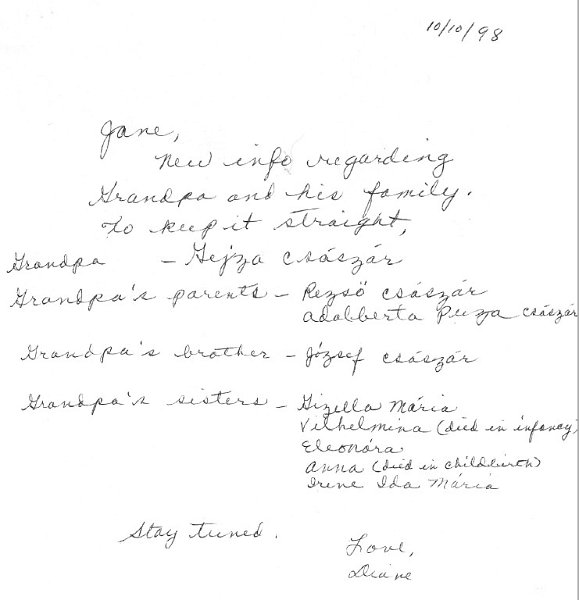 10/10/98
Jane,
New info regarding
Grandpa and his family.
To keep it straight,
Grandpa - Gejza Császár
Grandpa's parents - Rezső Császár
Adalberta Puza Császár
Grandpa's brother - József Császár
Grandpa's sisters - Gizella Mária
Vilhelmina (died in infancy)
Eleonóra
Anna (died in childbirth)
Irene Ida Mária
Stay tuned.
Love,
Diane